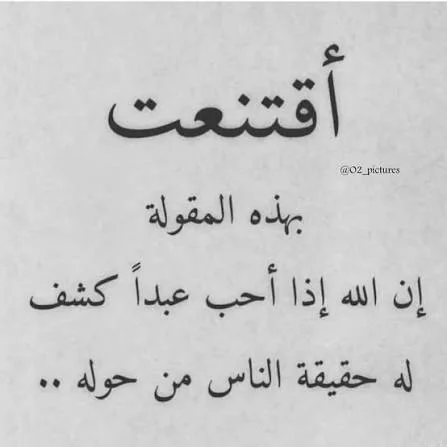 أقتنعت
@O2_pictures
بهذه المقولة
إن الله إذا أحب عبداً كشف
له حقيقة الناس من حوله ..